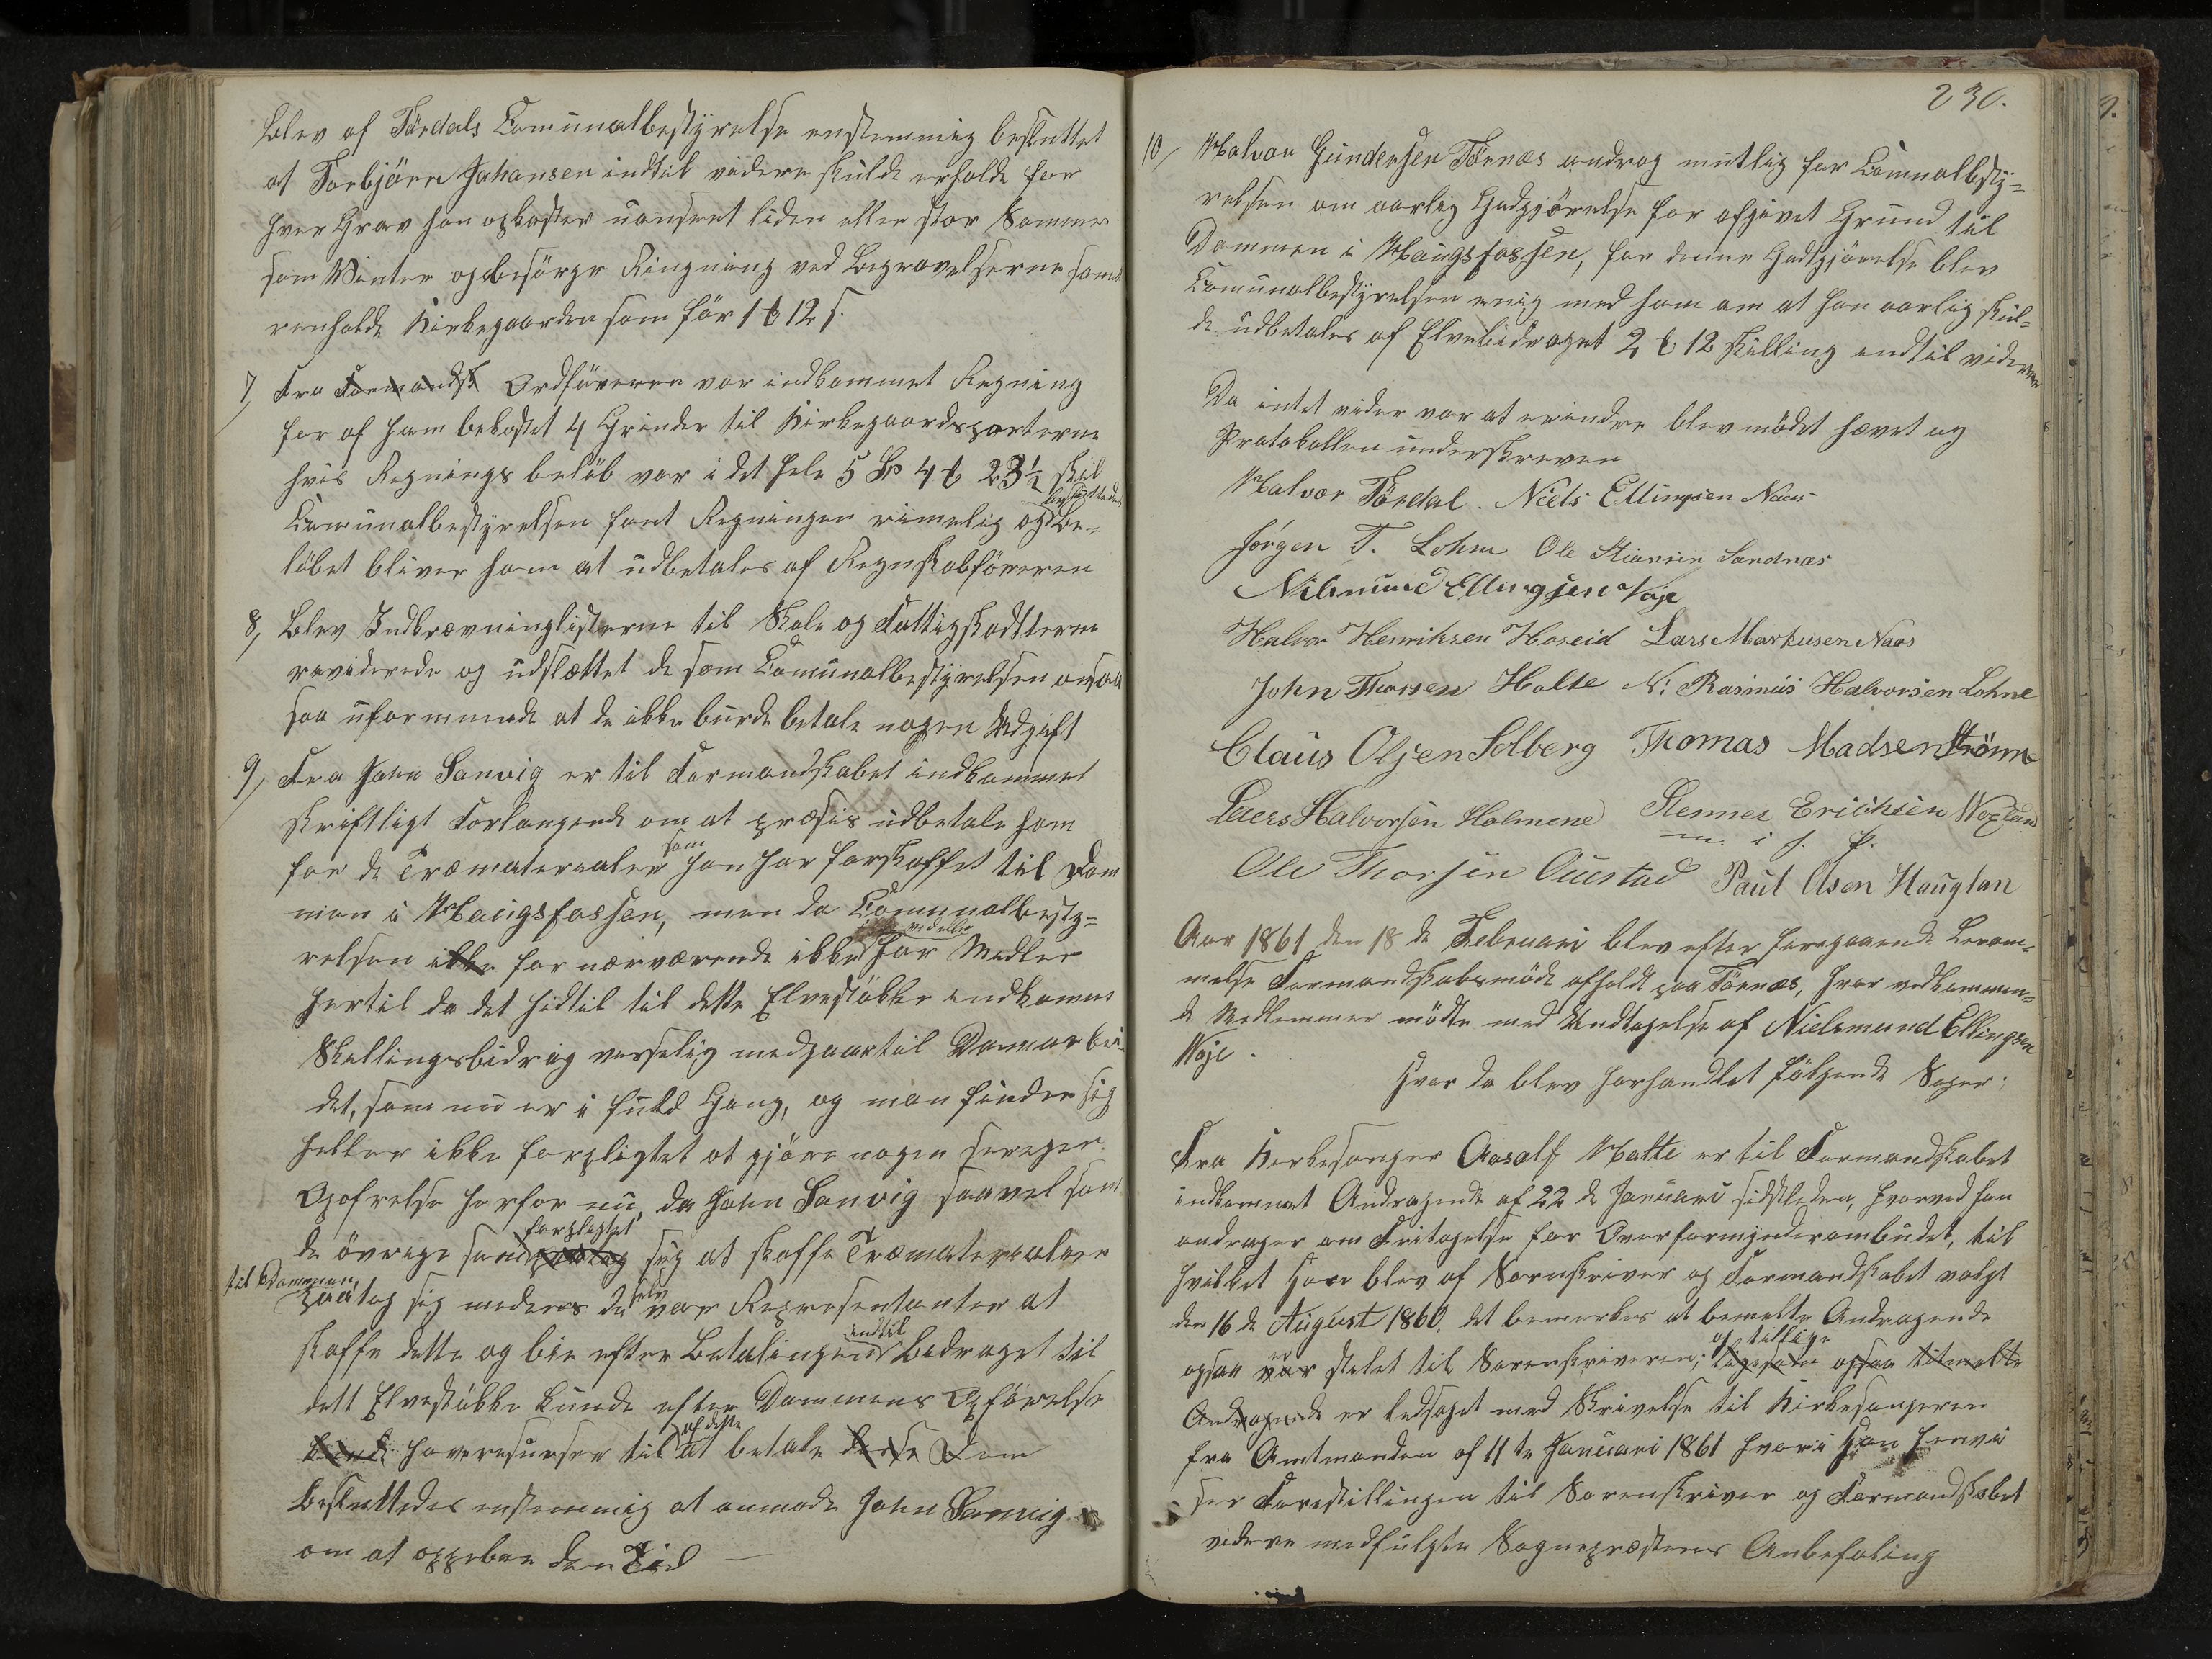 blev af Tördals Comunalbestyrelse enstemmig besluttet
at Torbjörn Johansen indtil videre skulde erholde for
hver Grav han opkaster uanseet liden eller stor Sommer
som Winter og besörge Ringning ved Begravelserne samt
renholde Kirkegaarden som för 1 ƀ 12 s.
7, Fra Formandsk Ordföreren var indkommet Regning
for af ham bekostet 4 Grinder til Kirkegaardsporterne
hvis Regnings belöb var i det hele 5 Sp 4 ƀ 23½ skil
besluttedes
Comunalbestyrelsen fant Regningen rimelig og Be-
löbet bliver ham at udbetales af Regnskabföreren
8, Blev Indkrævninglisterne til Skole og Fattigskadtterne
reviderede og udslættet de som Comunalbestyrelsen ansaa
saa uformuende at de ikke burde betale nogen Udgift
9, Fra John Sanvig er til Formandskabet indkommet
skriftligt Forlangende om at præsis udbetale ham
som
for de Træmaterealer han har forskaffet til Dam
men i Haugsfossen, men da Comunalbesty-
vedela
relsen ikke for nærværende ikke har Medler
hertil da det hidtil til dette Elvestökke indkomne
Skellingsbidrag vesselig medgaar til Damarbei-
det, som nu er i fuld Gang, og man finder sig
heller ikke forpligtet at gjöre nogen seregen
Opofrelse herfor nu, da John Sanvig saavel som
forplegtet
de övrige som paatog sig at skaffe Træmaterealer
til Dammen
paatog sig medens de selv var Representanter at
indtil
skaffe dette og bie efter Betalingen Bedraget til
dett Elvestökke kunde efter Dammens Opförelse
af dette
kunde haveresurser til at betale disse Dem
Besluttedes enstemmig at anmode John Sanvig
om at oppebie den Tid
230.
10, Halvor Gundersen Törnes androg mutlig for Comunalbesty-
relsen om aarlig Godgjörelse for afgivet Grund til
Dammen i Haugsfossen, for denne Godtgjörelse blev
Comunalbestyrelsen enig med ham om at han aarlig skul-
de udbetales af Elvebidraget 2 ƀ 12 skilling indtil videre
Da intet vider var at erindre blev mödet hævet og
Protokollen underskreven
Halvor Tördal. Niels Ellingsen Naes
Jörgen T. Lohne Ole Stiansen Sandnæs
Nilsmund Ellingsen Voje
Halvor Henriksen Hoseid Lars Markusen Naas
John Thorsen Holte N: Rasmus Halvorsen Lohne
Claus Olsen Solberg Thomas Madsen Strömme
Laers Halvorsen Holmene Stenner Erichsen Voxland
m. i f. P.
Ole Thorsen Ouestad Paul Olsen Hauglan
Aar 1861 den 18 de Februari blev efter foregaaende Beram-
melse Formandskabsmöde afholdt paa Törnæs, hvor vedkommen-
de Medlemmer mödte med Undtagelse af Nielsmund Ellingsen
Woje.
Hvor da blev forhandlet fölgende Sager:
Fra Kirkesanger Aasalf Hatte er til Formandskabet
indkommet Andragende af 22 de Januari sidstleden, hvorved han
andrager om Fritagelse for Overformynderombudet, til
hvilket Han blev af Sorenskriver og Formandskabet valgt
den 16 de August 1860. det bemerkes at bemelte Andragende
er og tillige
ogsaa var stelet til Sorenskriveren; ligesom ogsaa titmelte
Andragende er ledsaget med Skrivelse til Kirkesangeren
fra Amtmanden af 11 te Januari 1861 hvori Han henvi
ser Forestillingen til Sorenskriver og Formandskabet
videre medfulgte Sognepræstens Anbefaling